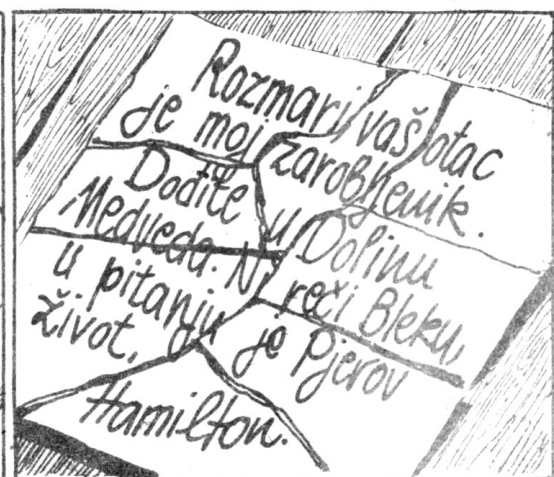 Rozmari, vaš otac
je moj zarobljenik.
Dođite u Dolinu
Medveda. Ni reči Bleku,
u pitanju je Pjerov
život.
Hamilton.